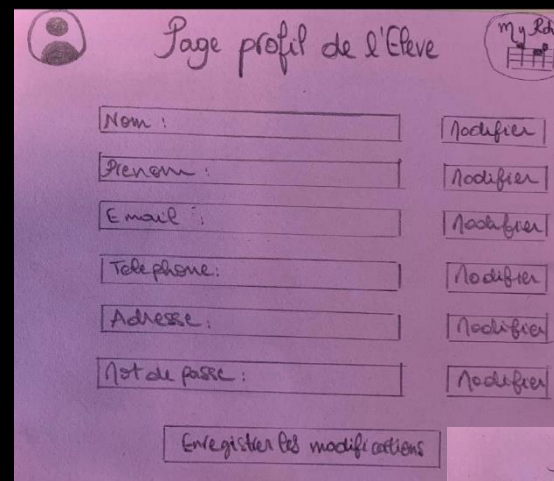 Page profil de l'Eleve
My Rdv
Nom :
Modifier
Prenom :
Modifier
Email :
Modifier
Telephone:
Modifier
Adresse:
Modifier
Mot de passe :
Modifier
Enregistrer les modifications